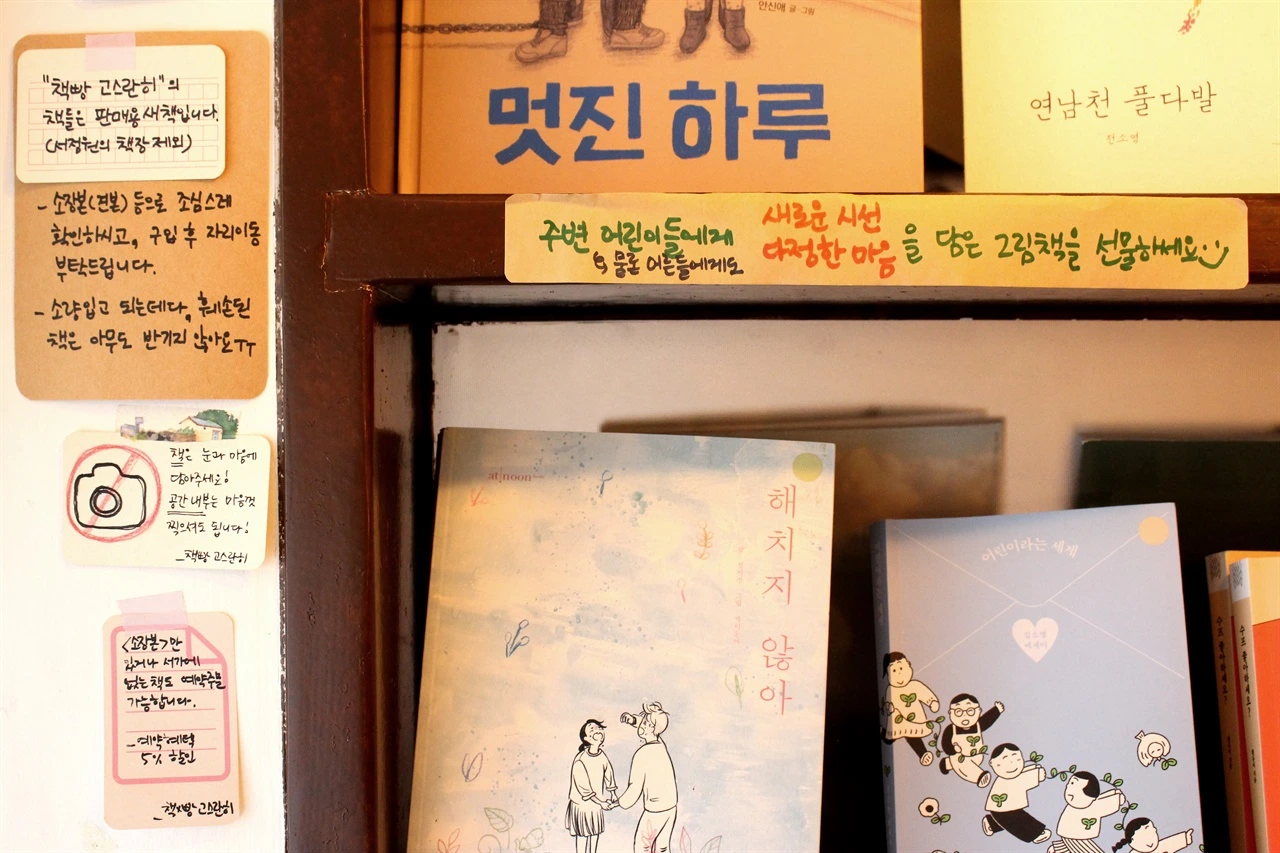 "책빵 고스란히"의
책들은 판매용 새책입니다.
(서정원의 책장 제외)
- 소장본(견본) 등으로 조심스레
확인하시고, 구입 후 자리이동
부탁드립니다.
- 소량입고 되는데다, 훼손된
책은 아무도 반기지 않아요ㅜㅜ
책은 눈과 마음에
담아주세요!
공간 내부는 마음껏
찍으셔도 됩니다!
_책빵 고스란히
<소장본>만
있거나 서가에
없는 책도 예약주문
가능합니다.
_예약혜택
5% 할인
_책빵 고스란히
안신애 글·그림
멋진 하루
연남천 풀다발
전소영
주변 어린이들에게 새로운 시선 다정한 마음 을 담은 그림책을 선물하세요
물론 어른들에게도
at|noon
해치지 않아
어린이라는 세계
김소영
에세이
수프 좋아하세요?
수프 좋아하세요?